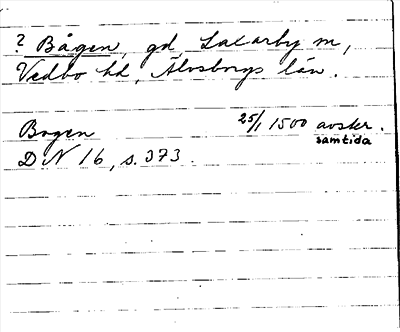 ? Bågen, gd, Laxarby sn,
Vedbo hd, Älvsborgs län.
Bogen 25/1 1500 avskr.
samtida
DN 16, s. 373.